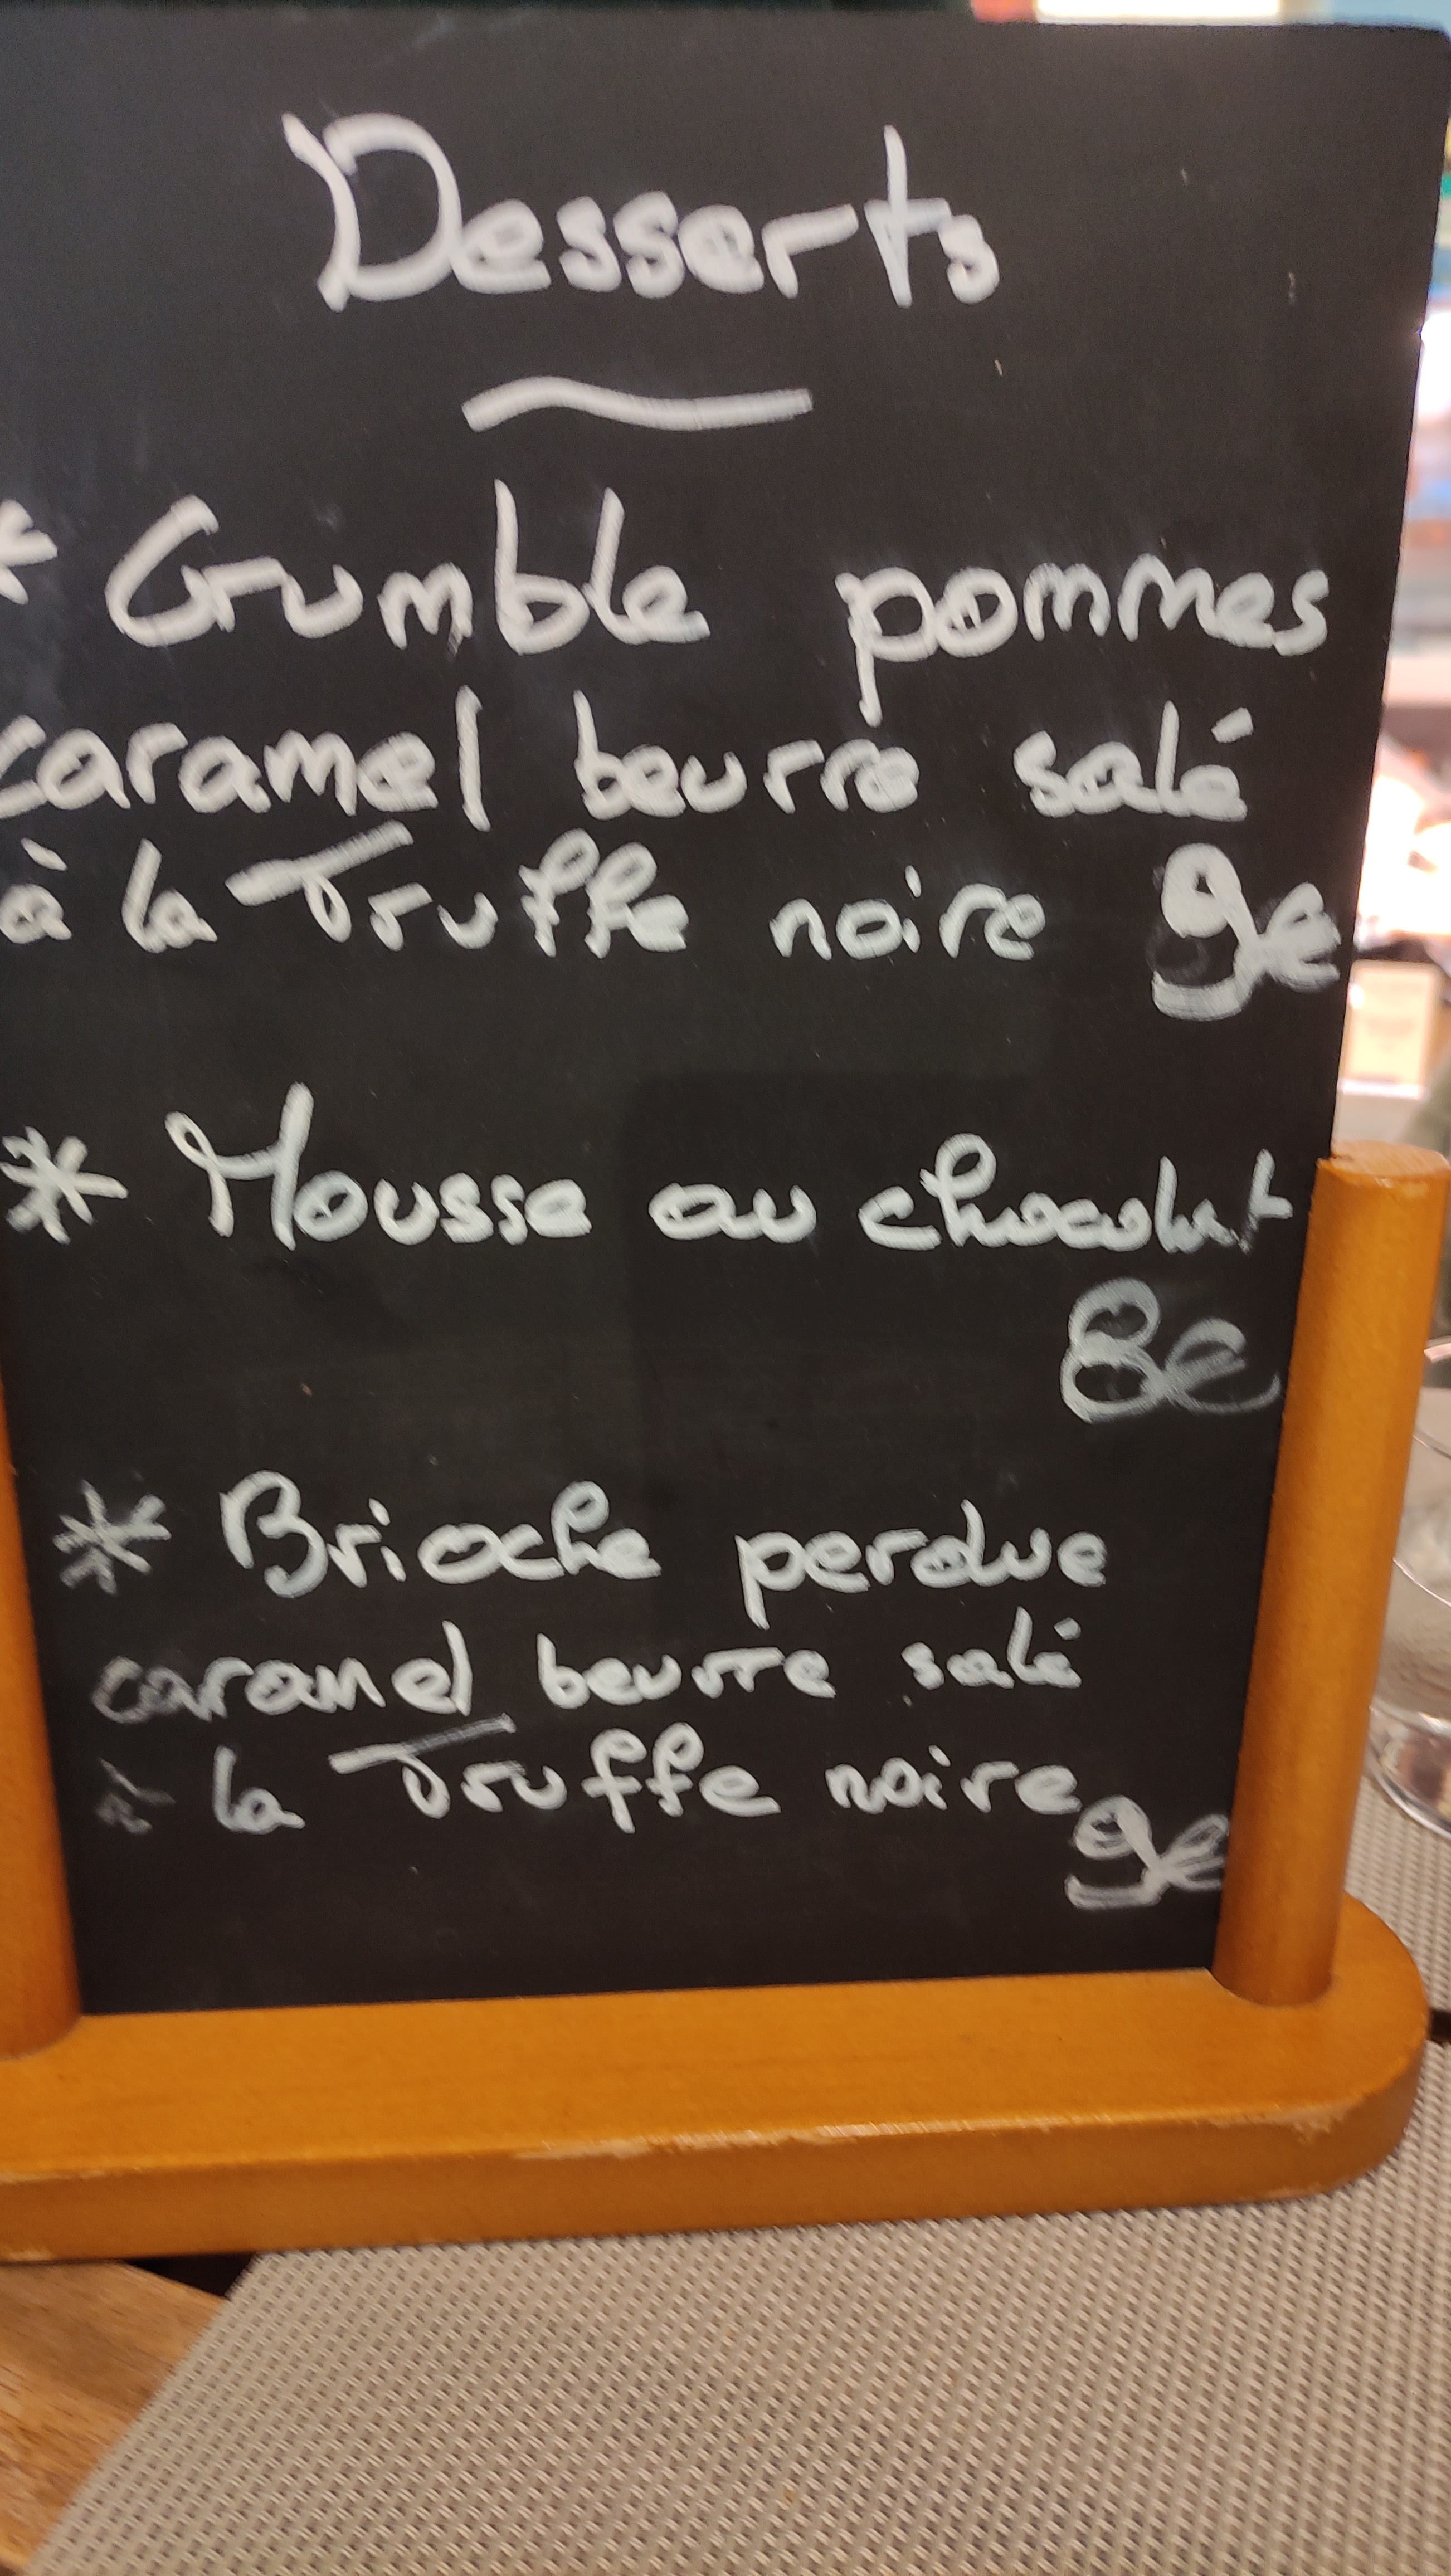 Desserts
* Crumble pommes
caramel beurre salé
à la Truffe noire 9€
* Mousse au chocolat
8€
* Brioche perdue
caramel beurre salé
à la Truffe noire
9€